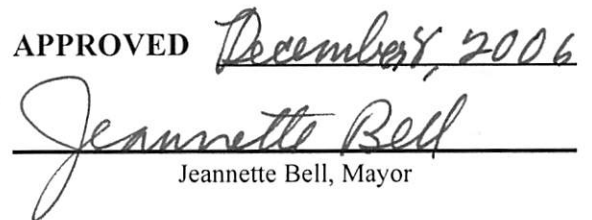 APPROVED December 8, 2006
Jeannette Bell
Jeannette Bell, Mayor